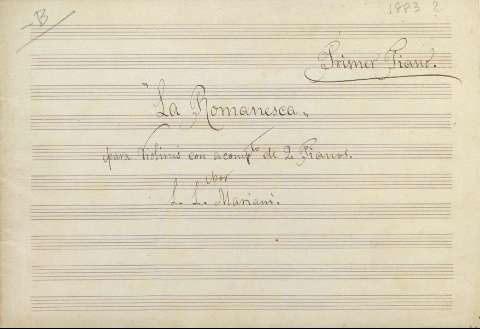 B
1883 ?
Primer Piano.
"La Romanesca"
para Violines con acompto de 2 Pianos.
por
L. L. Mariani.